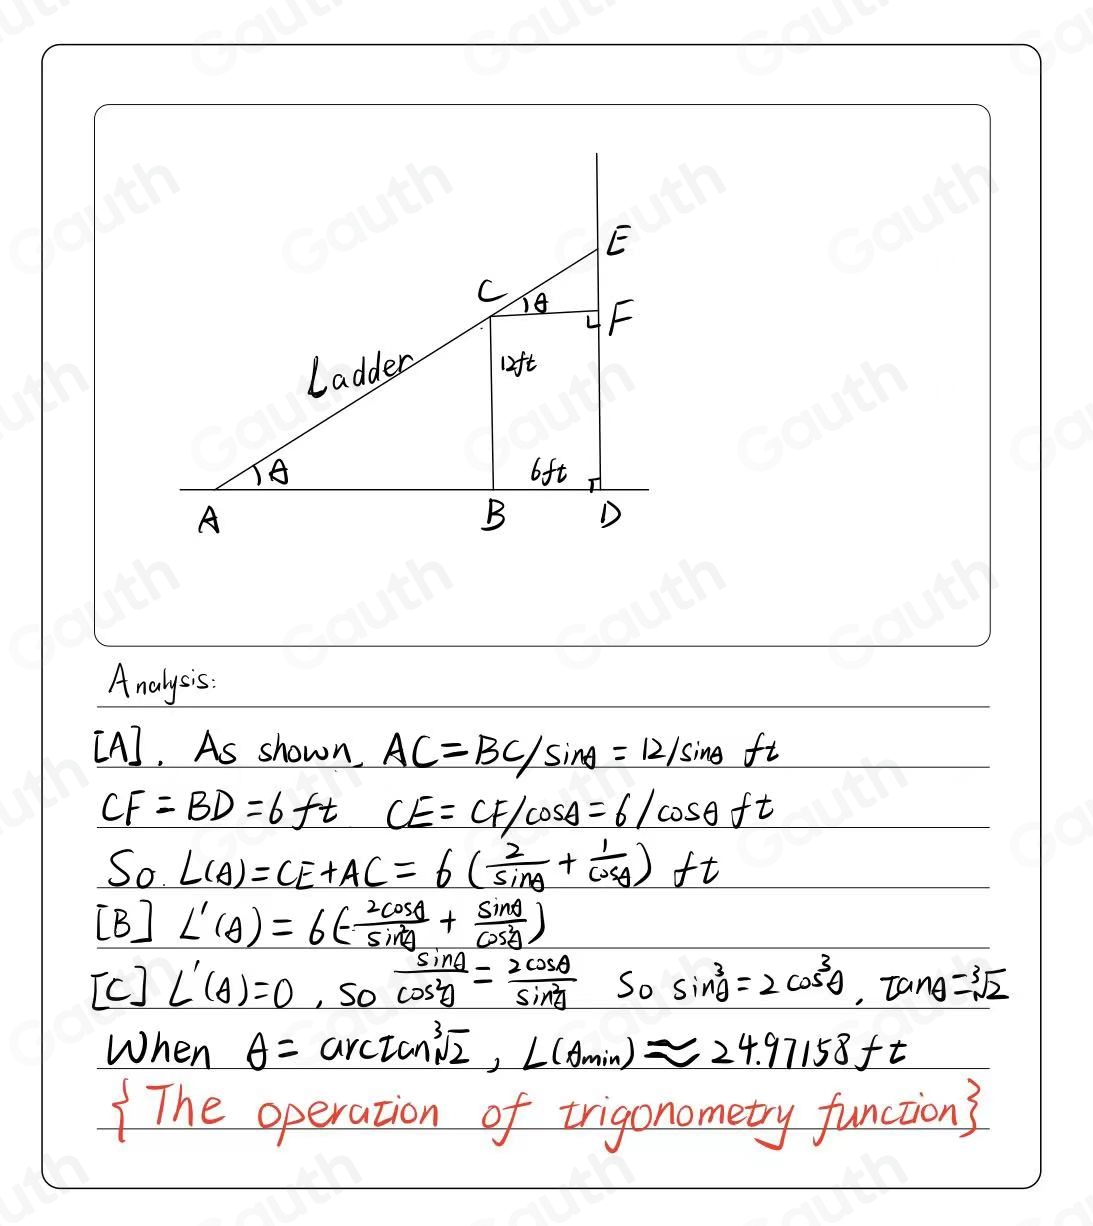 E
C
θ
F
Ladder
12ft
θ
6ft
A
B
D
Analysis:
[A]. As shown, AC=BC/sinθ = 12/sinθ ft
CF = BD =6 ft CE= CF/cosθ = 6/cosθ ft
So. L(θ)=CE+AC= 6(2/sinθ + 1/cosθ) ft
[B] L'(θ) = 6(-2cosθ/sin²θ + sinθ/cos²θ)
[C] L'(θ)=0, so sinθ/cos²θ = 2cosθ/sin²θ So sin³θ = 2cos³θ, tanθ=∛2
When θ = arctan∛2, L(θmin)≈24.97158ft
{The operation of trigonometry function}
Gauth